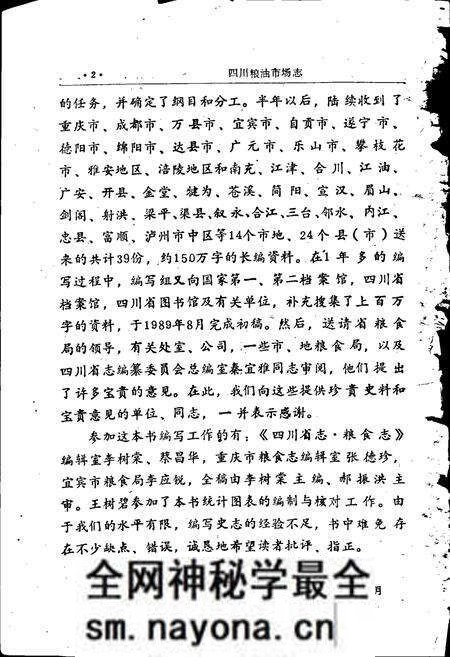 ·2· 四川粮油市场志
的任务，并确定了纲目和分工。半年以后，陆续收到了
重庆市、成都市、万县市、宜宾市、自贡市、遂宁市、
德阳市、绵阳市、达县市、广元市、乐山市、攀枝花
市、雅安地区、涪陵地区和南充、江津、合川、江油、
广安、开县、金堂、犍为、苍溪、简阳、宣汉、眉山、
剑阁、射洪、梁平、渠县、叙永、合江、三台、邻水、内江、
忠县、富顺、泸州市中区等14个市地、24个县（市）送
来的共计39份，约150万字的长编资料。在1年多的编
写过程中，编写组又向国家第一、第二档案馆，四川省
档案馆，四川省图书馆及有关单位，补充搜集了上百万
字的资料，于1989年8月完成初稿。然后，送请省粮食
局的领导，有关处室、公司，一些市、地粮食局，以及
四川省志编纂委员会总编室秦宜雅同志审阅，他们提出
了许多宝贵的意见。在此，我们向这些提供珍贵史料和
宝贵意见的单位、同志，一并表示感谢。
参加这本书编写工作的有：《四川省志·粮食志》
编辑室李树棠、蔡昌华，重庆市粮食志编辑室张德珍，
宜宾市粮食局李应锐，全稿由李树棠主编、郝振洪主
审。王树碧参加了本书统计图表的编制与核对工作。由
于我们的水平有限，编写史志的经验不足，书中难免存
在不少缺点、错误，诚恳地希望读者批评、指正。
月
全网神秘学最全
sm.nayona.cn